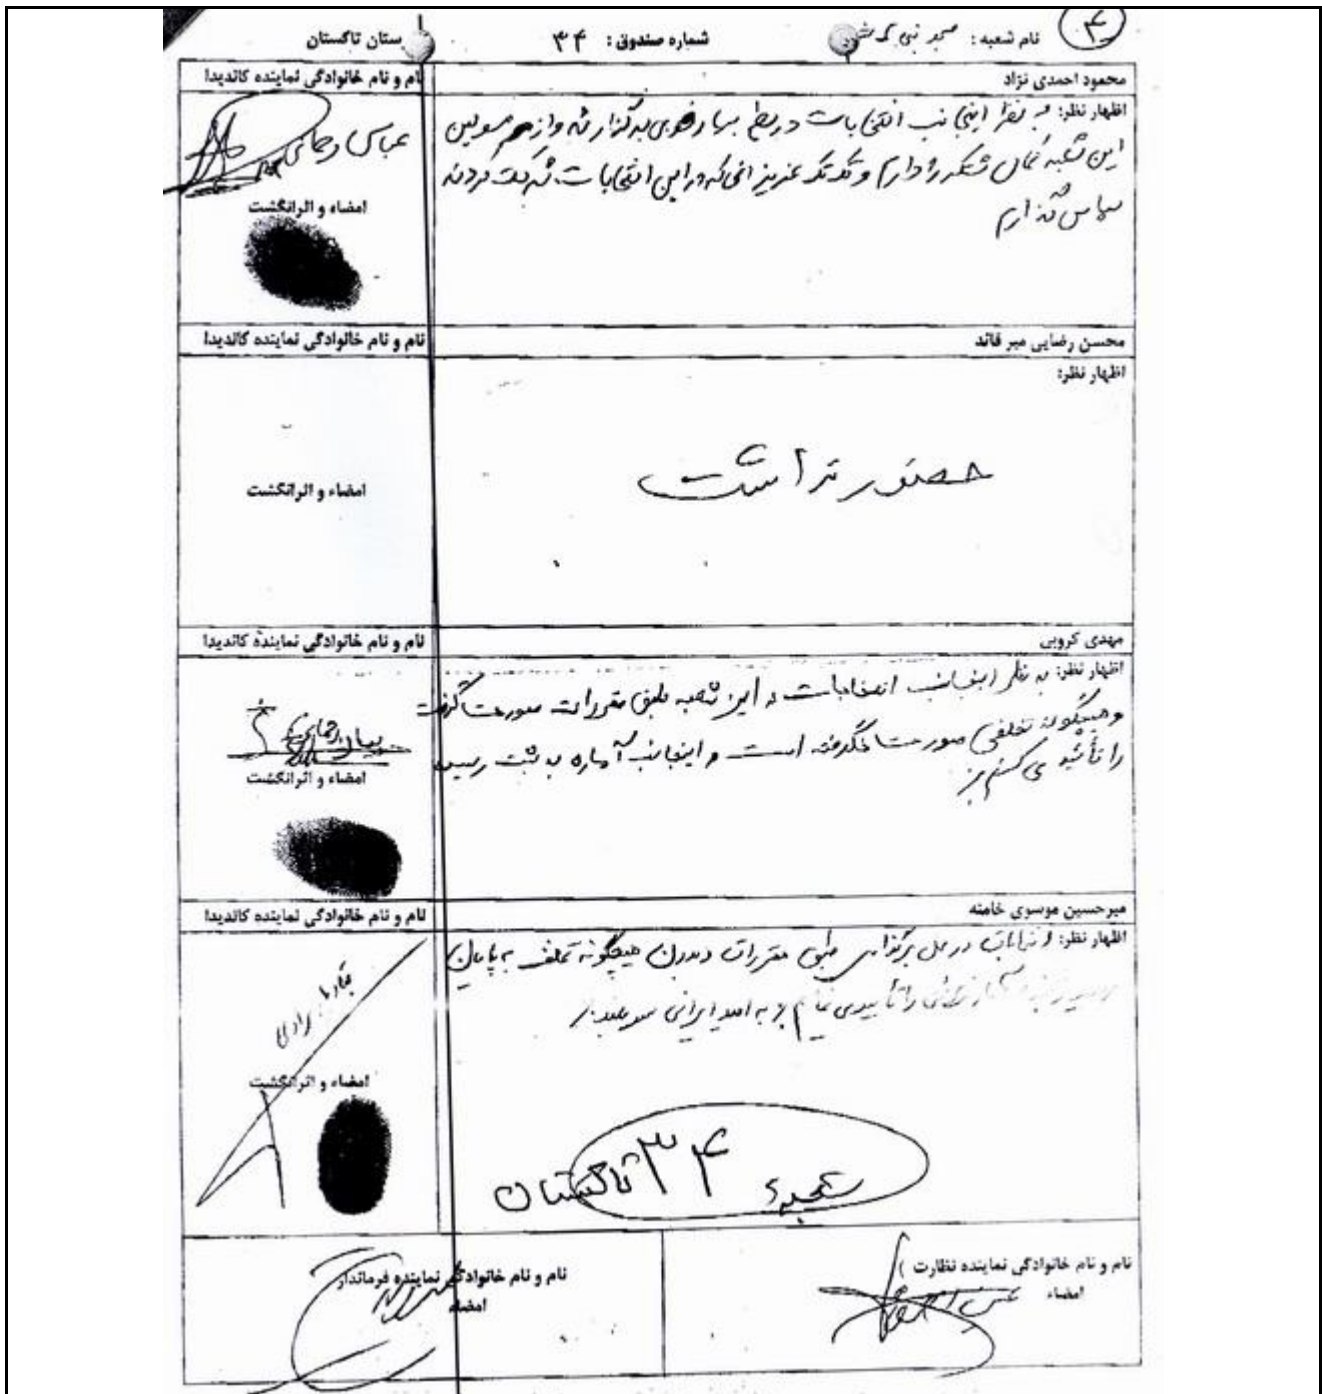 ۴
نام شعبه: مسجد نبی اکرم شماره صندوق: ۳۴ ستان تاکستان
محمود احمدی نژاد نام و نام خانوادگی نماینده کاندیدا
اظهار نظر: به نظر اینجانب انتخابات در سطح بسیار خوبی برگزار شد و از مسولین
این شعبه کمال تشکر را دارم و تک تک عزیزانی که در این انتخابات شرکت کردند
سپاس گذارم
عباس رحمانی
امضاء و اثرانگشت
محسن رضایی میر قائد نام و نام خانوادگی نماینده کاندیدا
اظهار نظر:
حضور نداشت
امضاء و اثرانگشت
مهدی کروبی نام و نام خانوادگی نماینده کاندیدا
اظهار نظر: به نظر اینجانب انتخابات در این شعبه طبق مقررات صورت گرفت
و هیچگونه تخلفی صورت نگرفته است و اینجانب آماره به ثبت رسیده
را تأئید می کنم
رحمانی
امضاء و اثرانگشت
میرحسین موسوی خامنه نام و نام خانوادگی نماینده کاندیدا
اظهار نظر: انتخابات در محل برگزاری طبق مقررات و بدون هیچگونه تخلف به پایان
رسید را تأیید می نمایم به امید ایرانی سربلند
امضاء و اثرانگشت
شعبهء ۳۴ تاکستان
نام و نام خانوادگی نماینده نظارت نام و نام خانوادگی نماینده فرماندار
امضاء امضاء